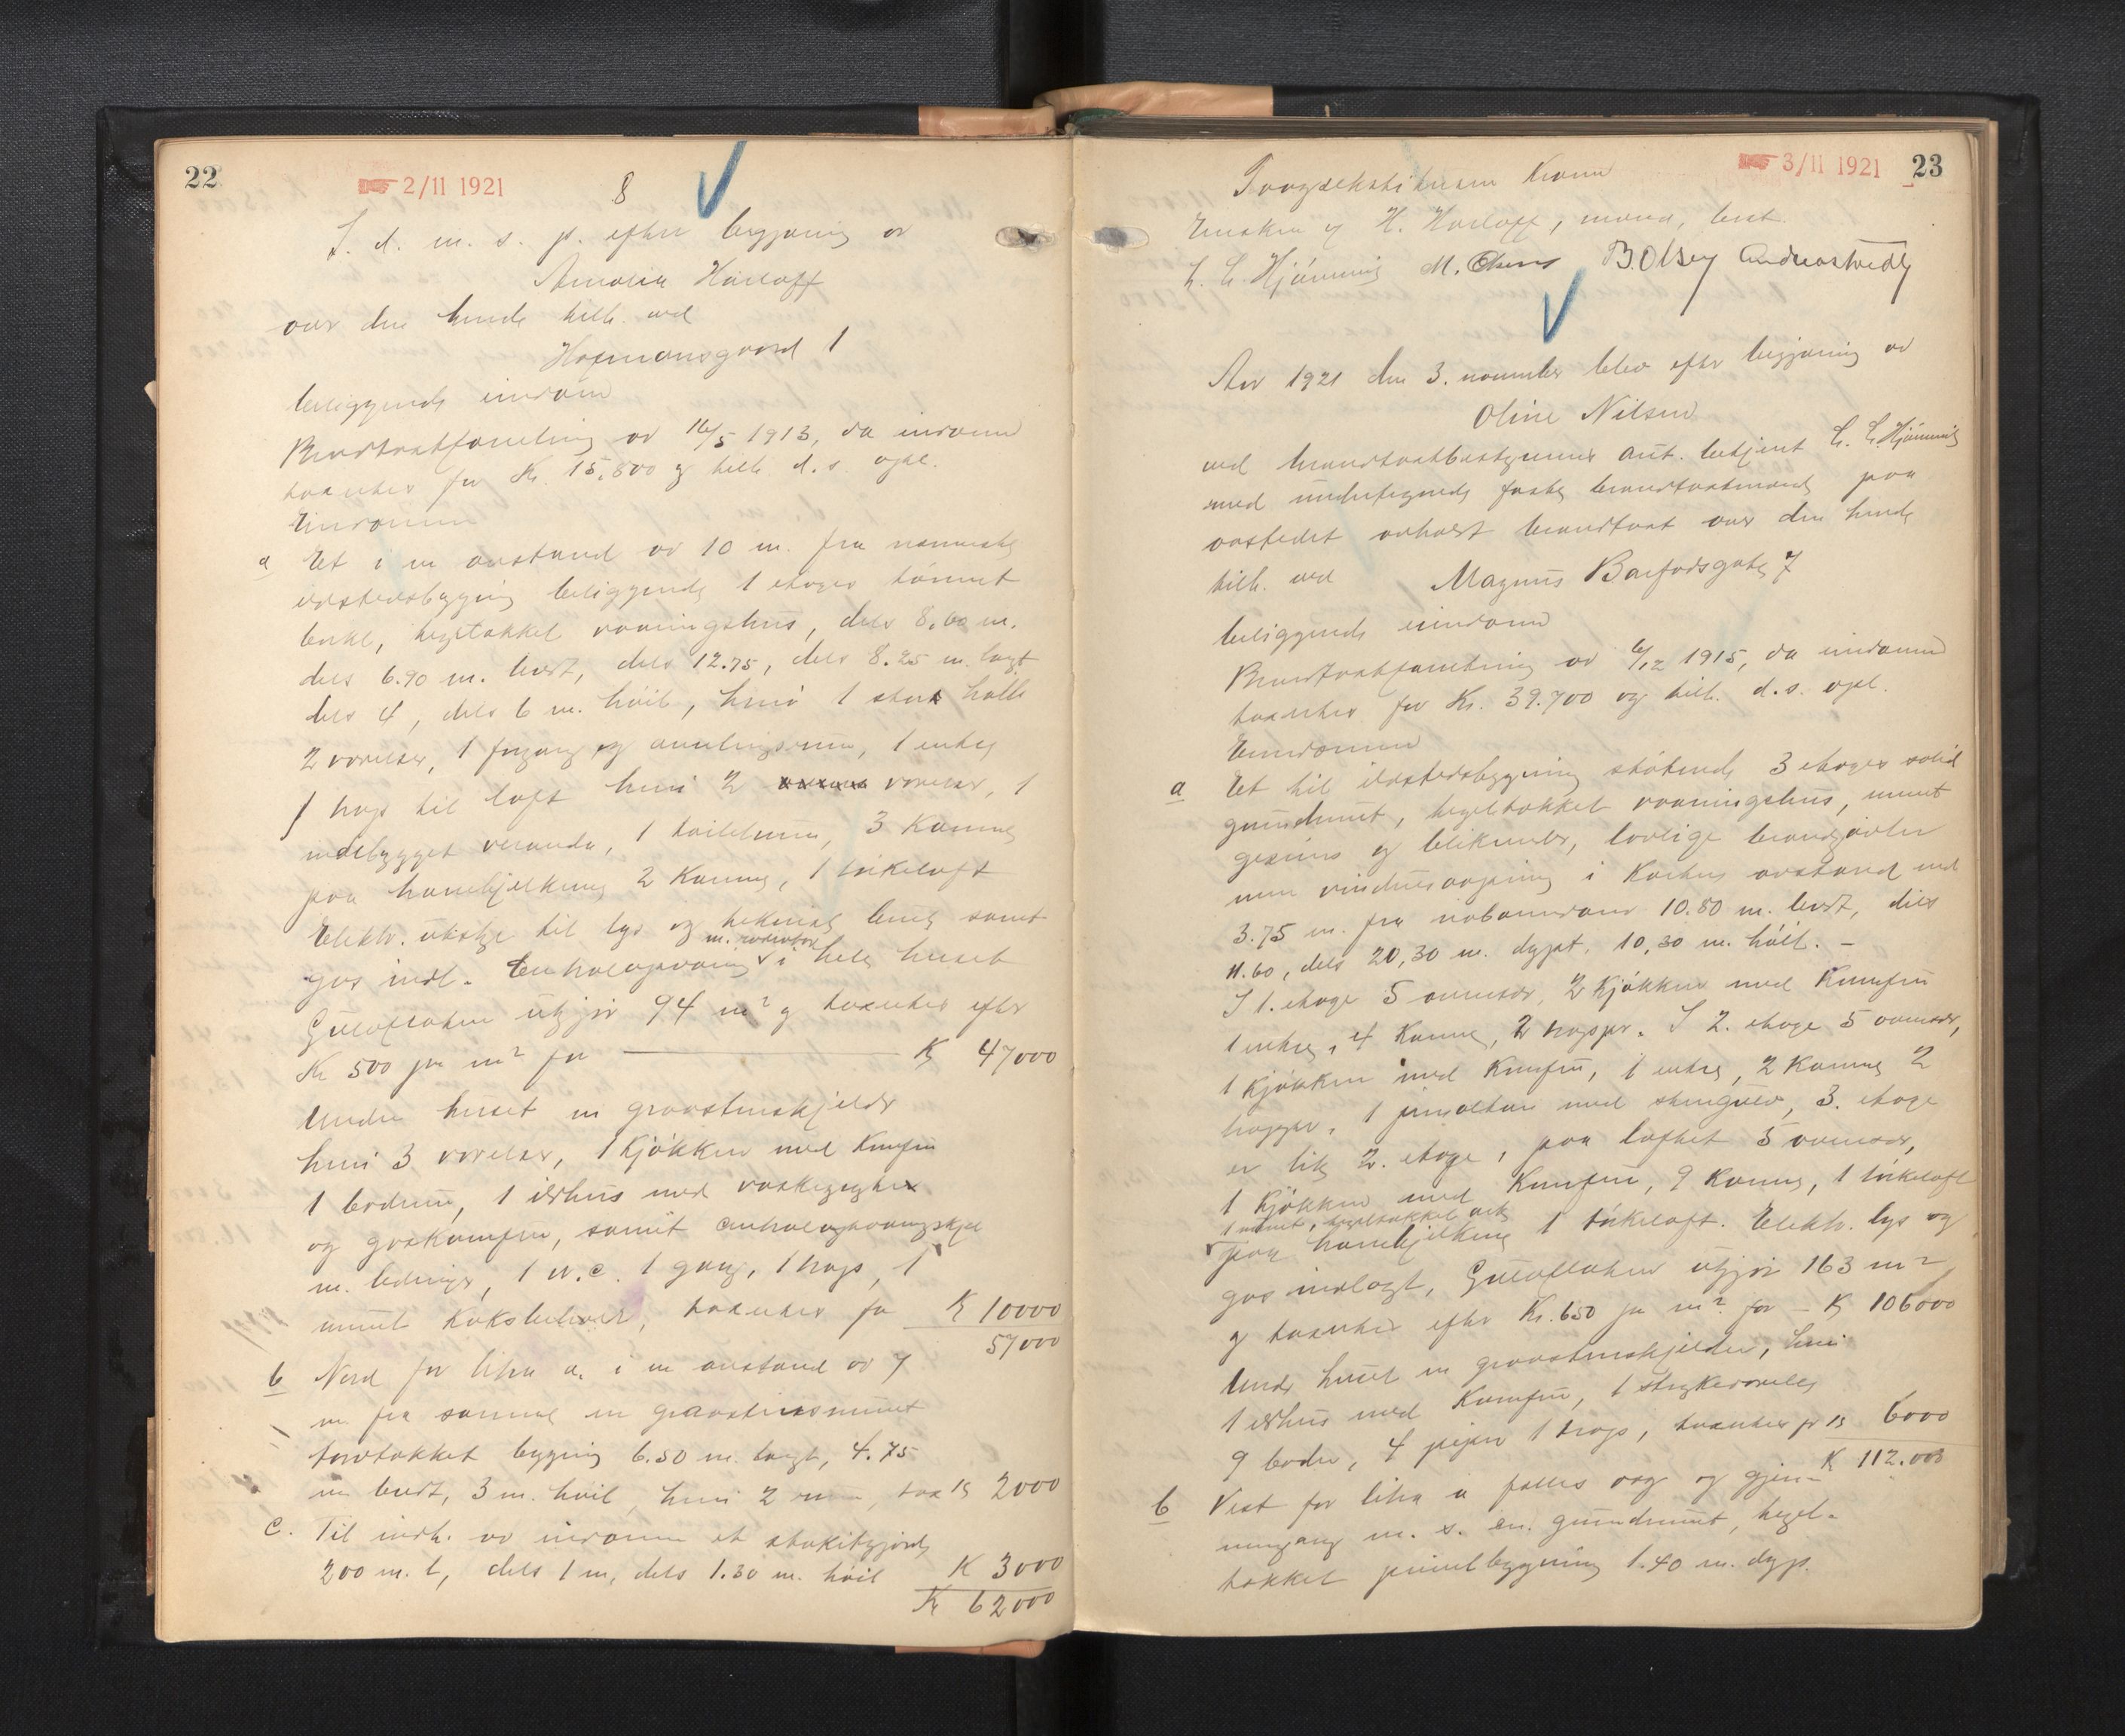 22
2/11 1921
8
I. d. m. s. p. efter begjæring av
Amalia Harloff
over den hende tilh. ved
Hofmansgaard 1
beliggende eiendom
Brandtakstforretning av 16/5 1913, da eiendommen
taxertes for Kr. 15,800 og tilh. d. s. opl.
Eiendommen
a Et i en avstand av 10 m. fra nærmeste
ildstedsbygning beliggende 1 etages tømret
bekl, tegltækket vaaningshus, dels 8.60 m.
dels 6.90 m. bredt, dels 12.75, dels 8.25 m. langt
dels 4, dels 6 m. høit, hvori 1 stor halle
2 værelser, 1 forgang og anretningsrum, 1 entre
1 trap til loft hvori 2 værelser, 1
indebygget veranda, 1 toiletrum, 3 kammer
paa hanebjelkerne 2 kammer, 1 tørkeloft
Elektr. utstyr til lys og teknisk bruk samt
gas indl. Centralopvarming m. radiatorer i hele huset
Gulvflaten utgjør 94 m² og taxertes efter
Kr 500 pr m² for Kr 47000
Under huset en graastenskjelder
hvori 3 værelser, 1 kjøkken med komfur
1 bodrum, 1 ildhus med vaskegryte
og gaskomfur, samt centralopvarmingskjel
m. ledninger, 1 W.C. 1 gang, 1 trap, 1
muret koksbeholder, taxertes for Kr 10000
57000
b Nord for litra a. i en avstand av 7
m. fra samme en graastensmuret
tordtækket bygning 6.50 m. langt, 4.75
m bredt, 3 m. høit, hvori 2 rum, tax Kr 2000
c. Til indh. av eiendommen et stakitgjerde
200 m. l, dels 1 m, dels 1.30 m. høit Kr 3000
Kr 62000
3/11 1921
23
Enken og H. Harloff, mand, best.
L. L. Hjømmig M. Olsens B. Olsen Andreas Tvedt
Aar 1921 den 3. november blev efter begjæring av
Oline Nilsen
ved brandtakstbestyrerens aut. betjent L. L. Hjømmig
med undertegnede faste brandtakstmænd paa
aastedet avholdt brandtakst over den hende
tilh. ved Magnus Barfodsgate 7
beliggende eiendom
Brandtakstforretning av 6/12 1915, da eiendommen
taxertes for Kr. 39.700 og tilh. d. s. opl.
Eiendommen
a Et til ildstedsbygning støtende 3 etages solid
grundmuret, tegltækket vaaningshus, muret
gesims og blikrender, lovlige brandgavler
men vinduesaapning i karhus avstand ved
3.75 m. fra naboeiendom 10.80 m. bredt, dels
11.60, dels 20,30 m. dypt, 10,30 m. høit. –
I 1. etage 5 værelser, 2 kjøkken med komfur
1 entre, 4 kammer, 2 trapper. I 2. etage 5 værelser,
1 kjøkken med komfur, 1 entre, 2 kammer 2
trapper, 1 jernaltan med stengulv, 3. etage
er lik 2. etage, paa loftet 5 værelser,
1 kjøkken med komfur, 9 kammer, 1 tørkeloft
1 muret, tegltækket ark
paa hanebjelkerne 1 tørkeloft. Elektr. lys og
gas indlagt, Gulvflaten utgjør 163 m²
og taxertes efter Kr. 650 pr m² for – Kr 106000
Under huset en graastenskjelder, hvori
1 ildhus med komfur, 1 strykeværelse
9 boder, 4 piper 1 trap, taxertes for Kr 6000
Kr 112.000
b Vest for litra a fælles væg og gjen-
nemgang m. s. en grundmuret, tegl-
tækket privetbygning 1.40 m. dyp.